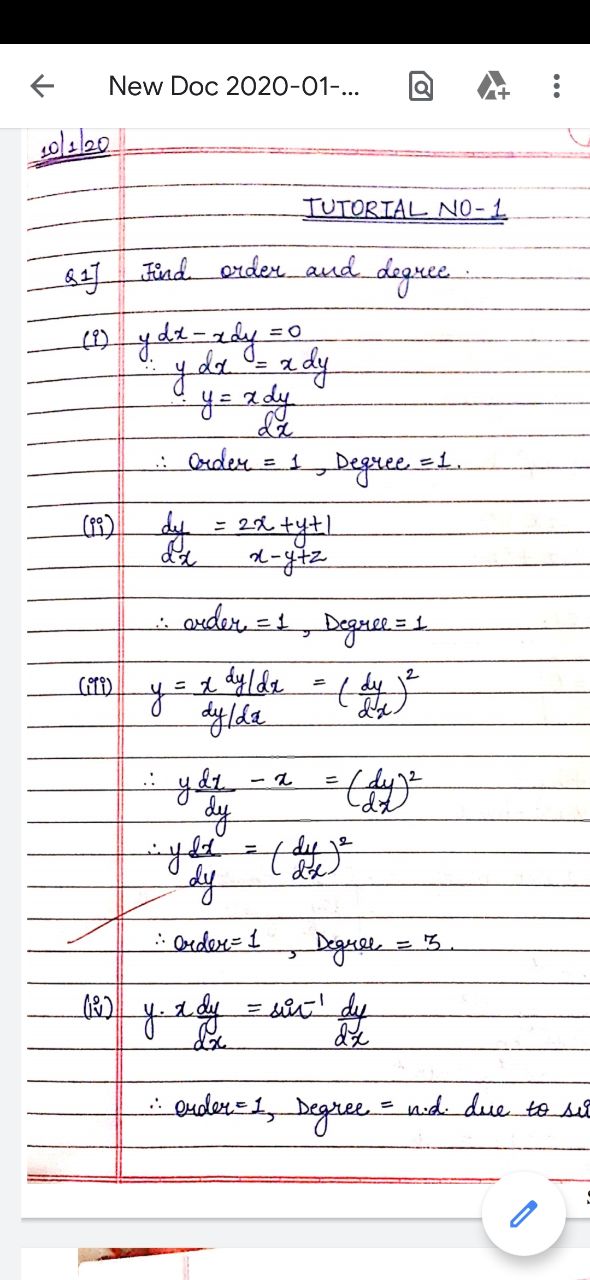 New Doc 2020-01-...
10/1/20
TUTORIAL NO-1
Q1] Find order and degree.
(i) y dx - x dy = 0
∴ y dx = x dy
∴ y = x dy/dx
∴ Order = 1, Degree = 1.
(ii) dy/dx = 2x+y+1 / x-y+z
∴ order = 1, Degree = 1
(iii) y = x dy/dx / dy/dx = (dy/dx)²
∴ y dx/dy - x = (dy/dx)²
∴ y dx/dy = (dy/dx)²
∴ Order = 1, Degree = 3.
(iv) y. x dy/dx = sin⁻¹ dy/dx
∴ order = 1, Degree = n.d. due to